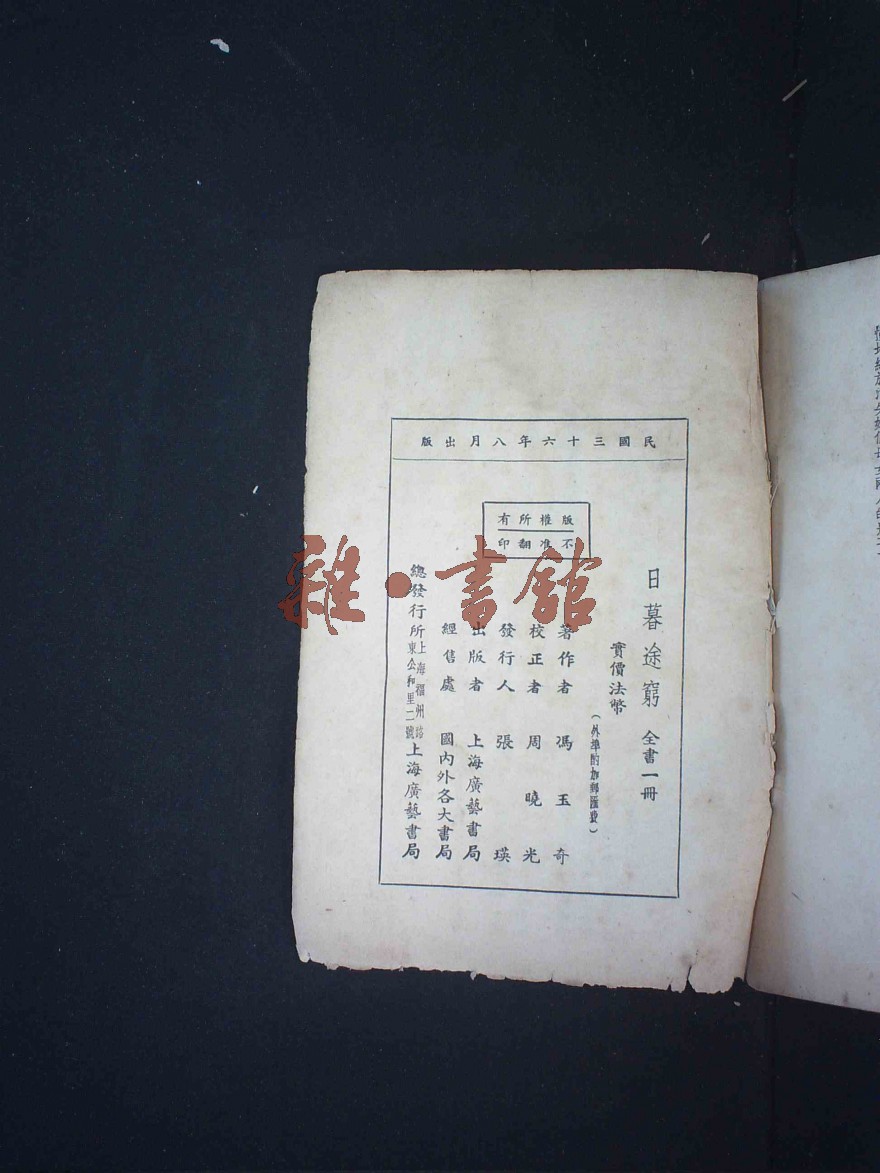 民國三十六年八月出版
版權所有
不准翻印
日暮途窮 全書一冊
實價法幣
(外埠酌加郵匯費)
著作者 馮玉奇
校正者 周曉光
發行人 張瑛
出版者 上海廣藝書局
經售處 國內外各大書局
總發行所 上海福州路東公和里二號 上海廣藝書局
雜·書館